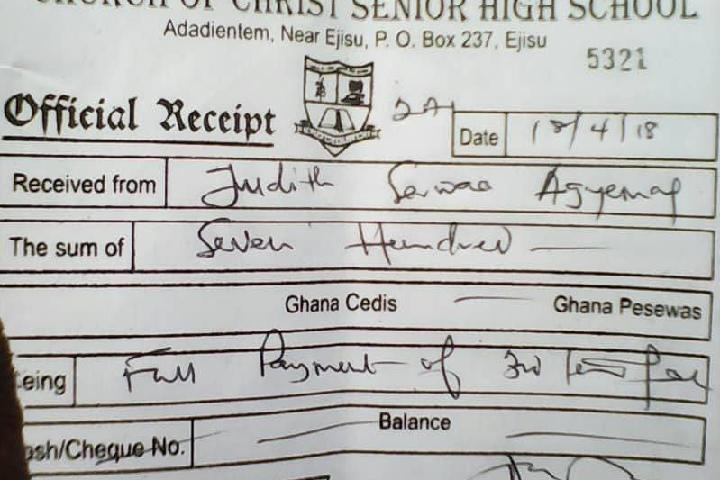 CHURCH OF CHRIST SENIOR HIGH SCHOOL
Adadientem, Near Ejisu, P. O. Box 237, Ejisu
5321
Official Receipt
2A1
Date 18/4/18
Received from Judith Serwaa Agyemang
The sum of Seven Hundred
Ghana Cedis Ghana Pesewas
eing Full Payment of 3rd term fees
Balance
ash/Cheque No.